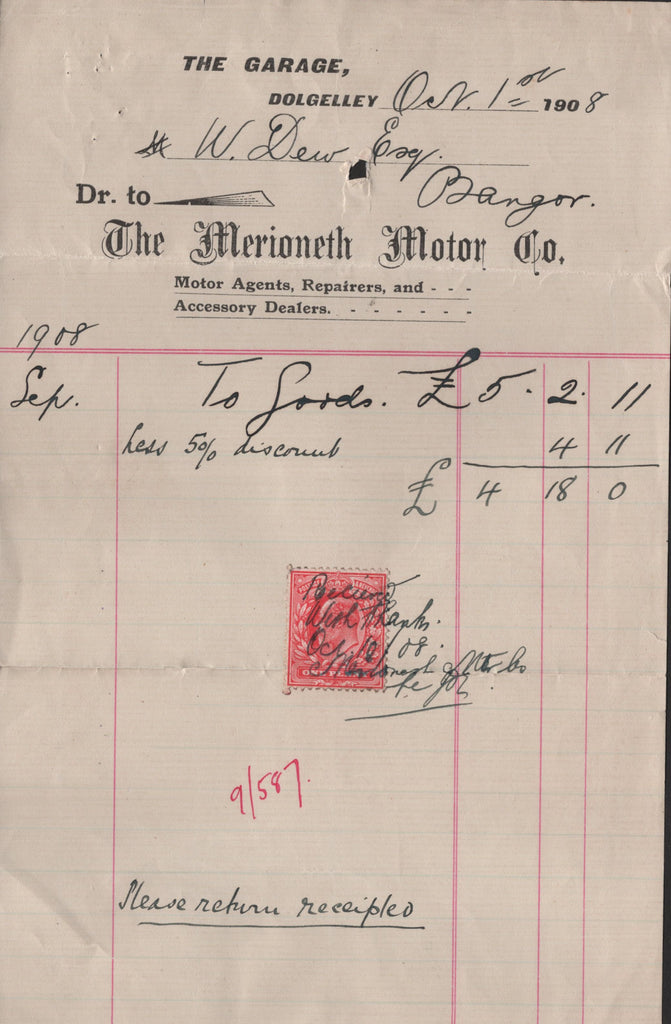 THE GARAGE,
DOLGELLEY Oct. 1st 1908
W. Dew Esq.
Dr. to Bangor.
The Merioneth Motor Co.
Motor Agents, Repairers, and - - -
Accessory Dealers. - - - - - -
1908
Sep. To Goods. £ 5. 2. 11
Less 5% discount 4 11
£ 4 18 0
Received
With thanks.
Oct. 10. 08.
Merioneth Motor Co
ONE PENNY
9/587.
Please return receipted